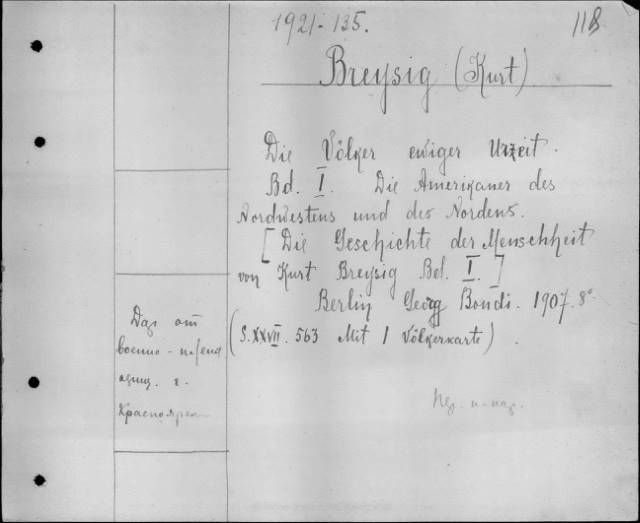 1921-135.
118
Breysig (Kurt)
Die Völker ewiger Urzeit.
Bd. I. Die Amerikaner des
Nordwestens und des Nordens.
[Die Geschichte der Menschheit
von Kurt Breysig Bd. I.]
Berlin Georg Bondi. 1907. 8°
(S. XXVII. 563 Mit 1 Völkerkarte).
Дар от
военно-
Красноярск